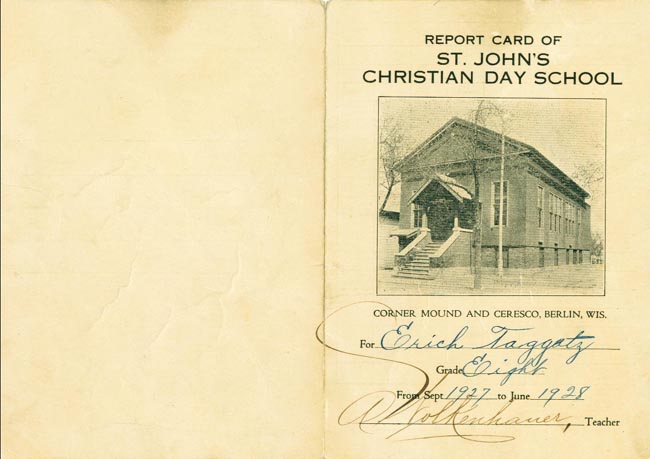 REPORT CARD OF
ST. JOHN'S
CHRISTIAN DAY SCHOOL
CORNER MOUND AND CERESCO, BERLIN, WIS.
For Erich Taggatz
Grade Eight
From Sept 1927 to June 1928
A. Wolkenhauer, Teacher